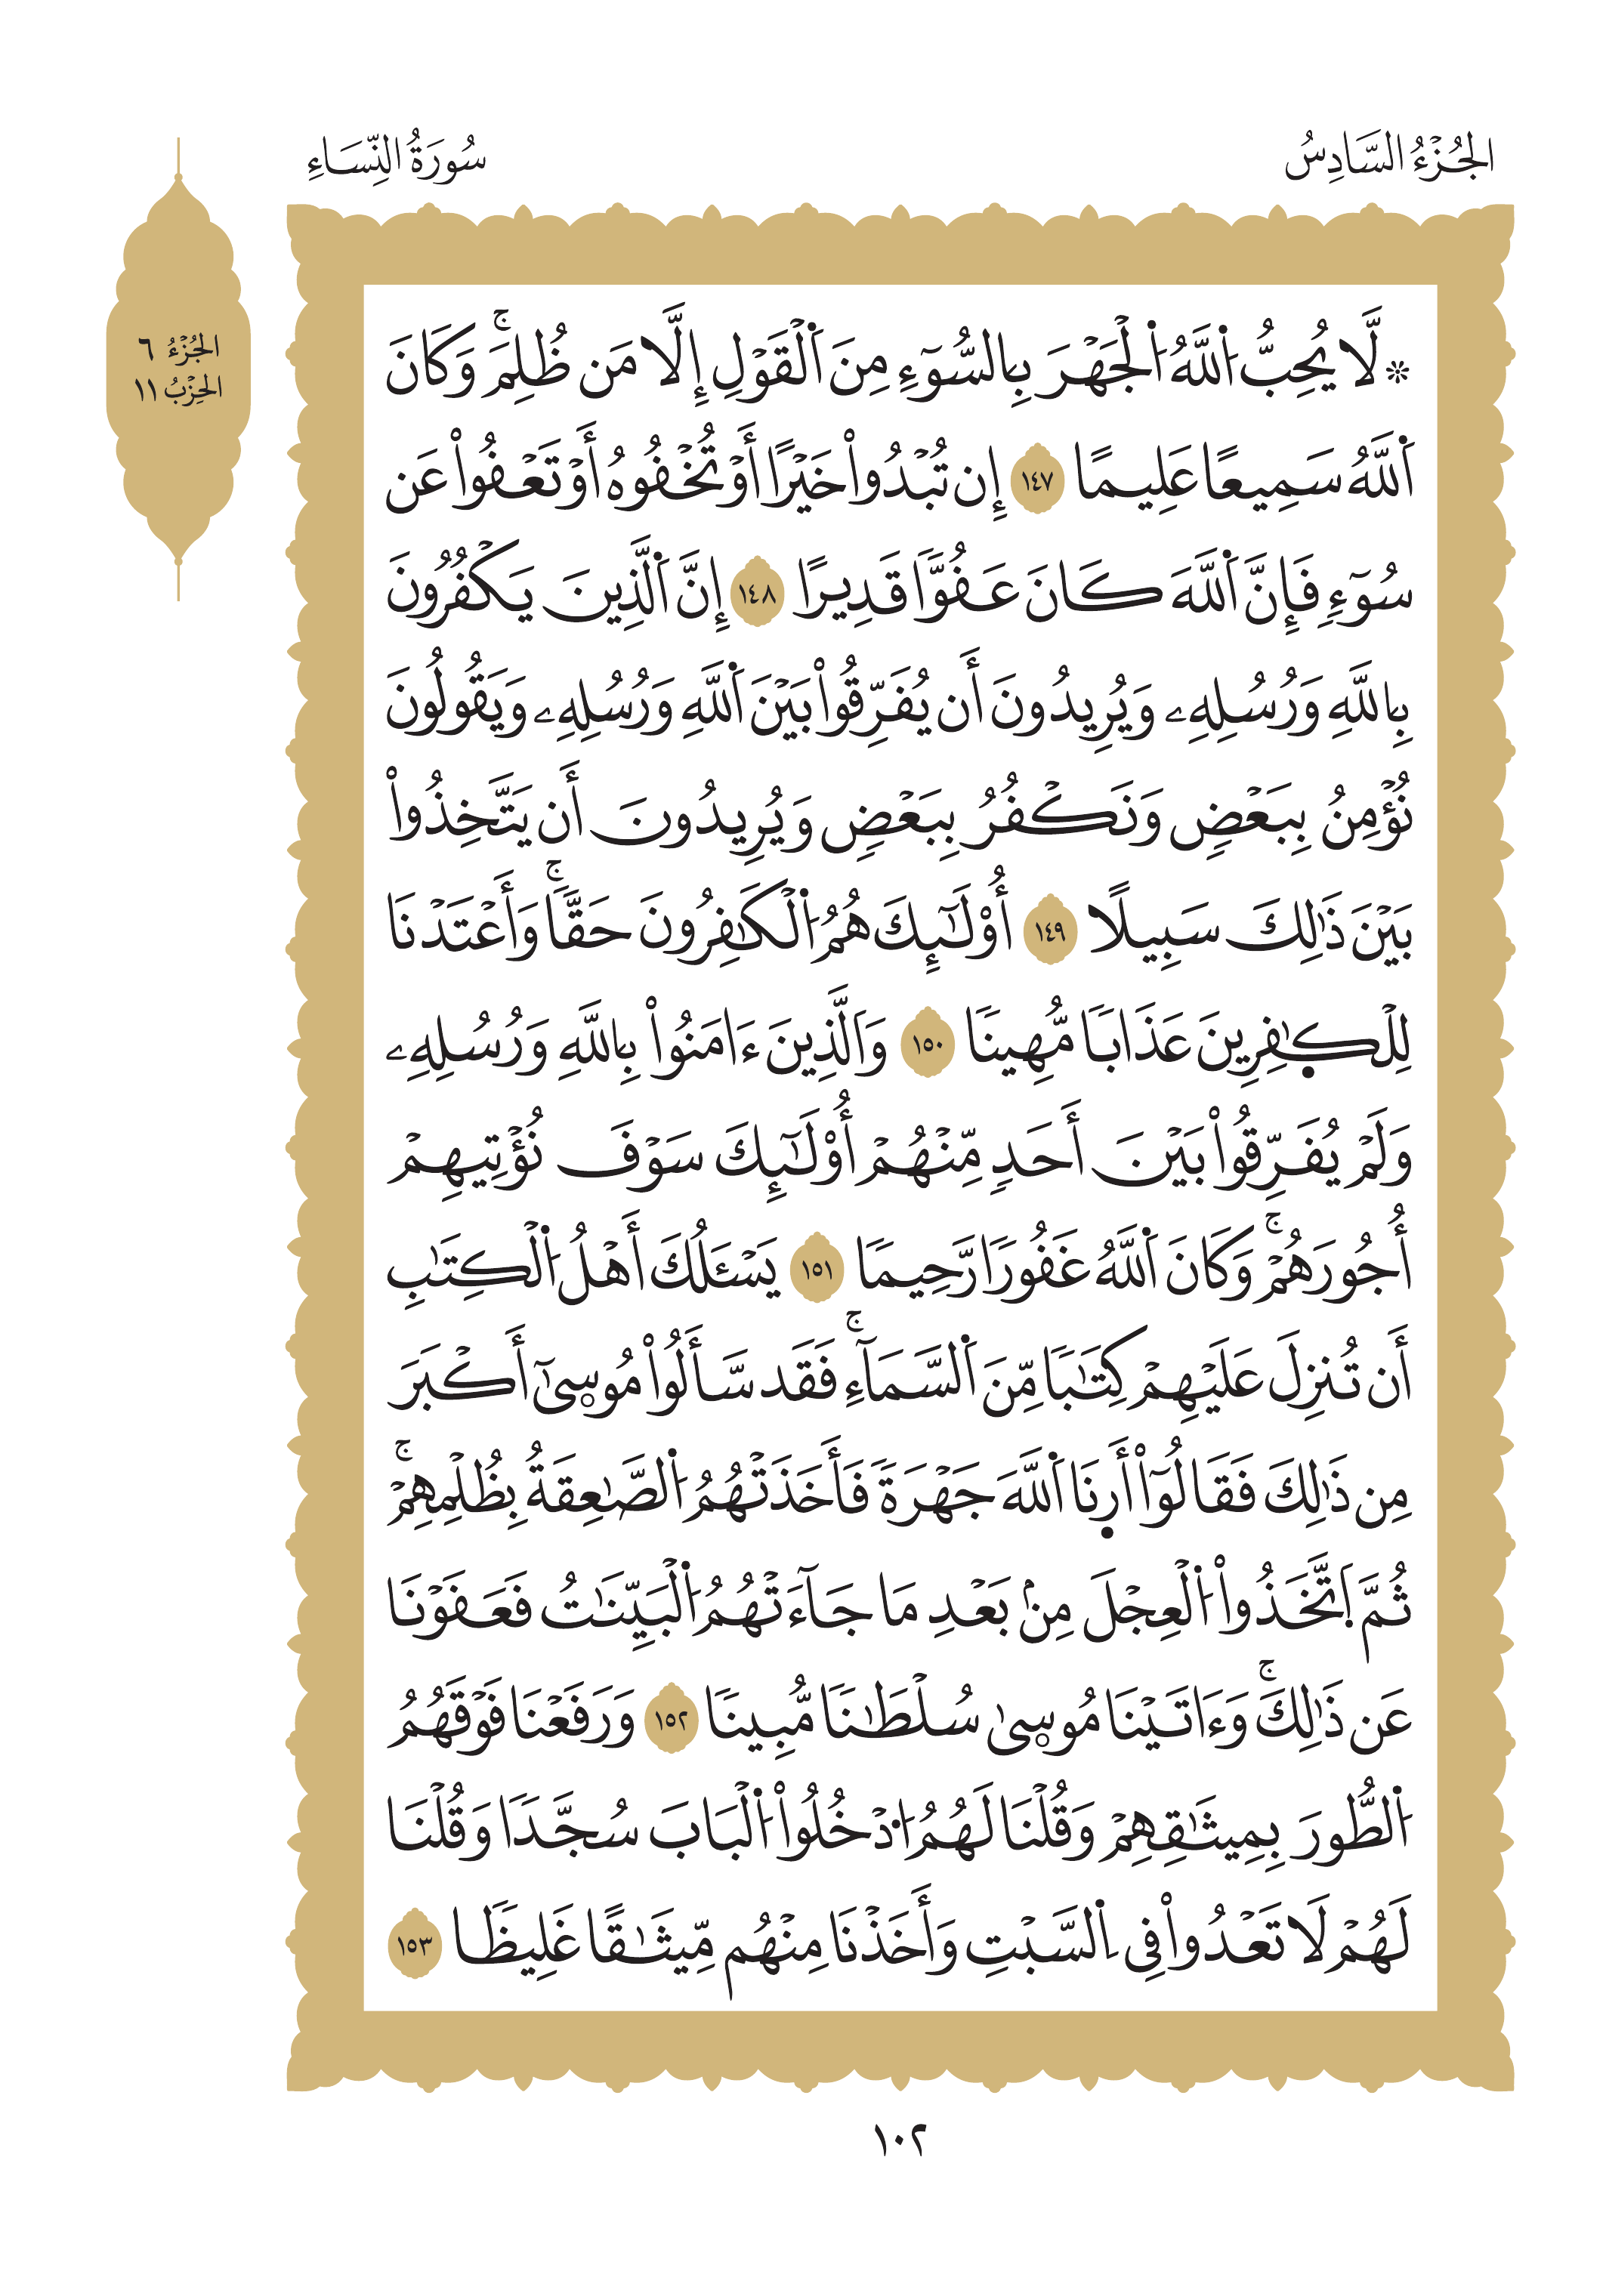 الجُزْءُ السَّادِسُ
سُورَةُ النِّسَاءِ
الجُزْءُ ٦
الحِزْبُ ١١
۞ لَّا يُحِبُّ اُ۬للَّهُ اُ۬لْجَهْرَ بِالسُّوٓءِ مِنَ اَ۬لْقَوْلِ إِلَّا مَن ظُلِمَۚ وَكَانَ
اَ۬للَّهُ سَمِيعًا عَلِيمًا ١٤٧ إِن تُبْدُواْ خَيْرًا أَوْ تُخْفُوهُ أَوْ تَعْفُواْ عَن
سُوٓءٖ فَإِنَّ اَ۬للَّهَ كَانَ عَفُوّٗا قَدِيرًا ١٤٨ إِنَّ اَ۬لَّذِينَ يَكْفُرُونَ
بِاللَّهِ وَرُسُلِهِۦ وَيُرِيدُونَ أَن يُفَرِّقُواْ بَيْنَ اَ۬للَّهِ وَرُسُلِهِۦ وَيَقُولُونَ
نُؤْمِنُ بِبَعْضٖ وَنَكْفُرُ بِبَعْضٖ وَيُرِيدُونَ أَن يَتَّخِذُواْ
بَيْنَ ذَٰلِكَ سَبِيلًا ١٤٩ أُوْلَٰٓئِكَ هُمُ اُ۬لْكَٰفِرُونَ حَقّٗاۚ وَأَعْتَدْنَا
لِلْكٰٜفِرِينَ عَذَابٗا مُّهِينٗا ١٥٠ وَالَّذِينَ ءَامَنُواْ بِاللَّهِ وَرُسُلِهِۦ
وَلَمْ يُفَرِّقُواْ بَيْنَ أَحَدٖ مِّنْهُمْ أُوْلَٰٓئِكَ سَوْفَ نُؤْتِيهِمْ
أُجُورَهُمْۚ وَكَانَ اَ۬للَّهُ غَفُورٗا رَّحِيمٗا ١٥١ يَسْـَٔلُكَ أَهْلُ اُ۬لْكِتَٰبِ
أَن تُنزِلَ عَلَيْهِمْ كِتَٰبٗا مِّنَ اَ۬لسَّمَآءِۚ فَقَد سَّأَلُواْ مُوسۭيٰٓ أَكْبَرَ
مِن ذَٰلِكَ فَقَالُوٓاْ أَرۭنَا اَ۬للَّهَ جَهْرَةٗ فَأَخَذَتْهُمُ اُ۬لصَّٰعِقَةُ بِظُلْمِهِمْۚ
ثُمَّ اَ۪تَّخَذُواْ اُ۬لْعِجْلَ مِنۢ بَعْدِ مَا جَآءَتْهُمُ اُ۬لْبَيِّنَٰتُ فَعَفَوْنَا
عَن ذَٰلِكَۚ وَءَاتَيْنَا مُوسۭيٰ سُلْطَٰنٗا مُّبِينٗا ١٥٢ وَرَفَعْنَا فَوْقَهُمُ
اُ۬لطُّورَ بِمِيثَٰقِهِمْ وَقُلْنَا لَهُمُ اُ۟دْخُلُواْ اُ۬لْبَابَ سُجَّدٗا وَقُلْنَا
لَهُمْ لَا تَعْدُواْ فِي اِ۬لسَّبْتِ وَأَخَذْنَا مِنْهُم مِّيثَٰقًا غَلِيظٗا ١٥٣
١٠٢